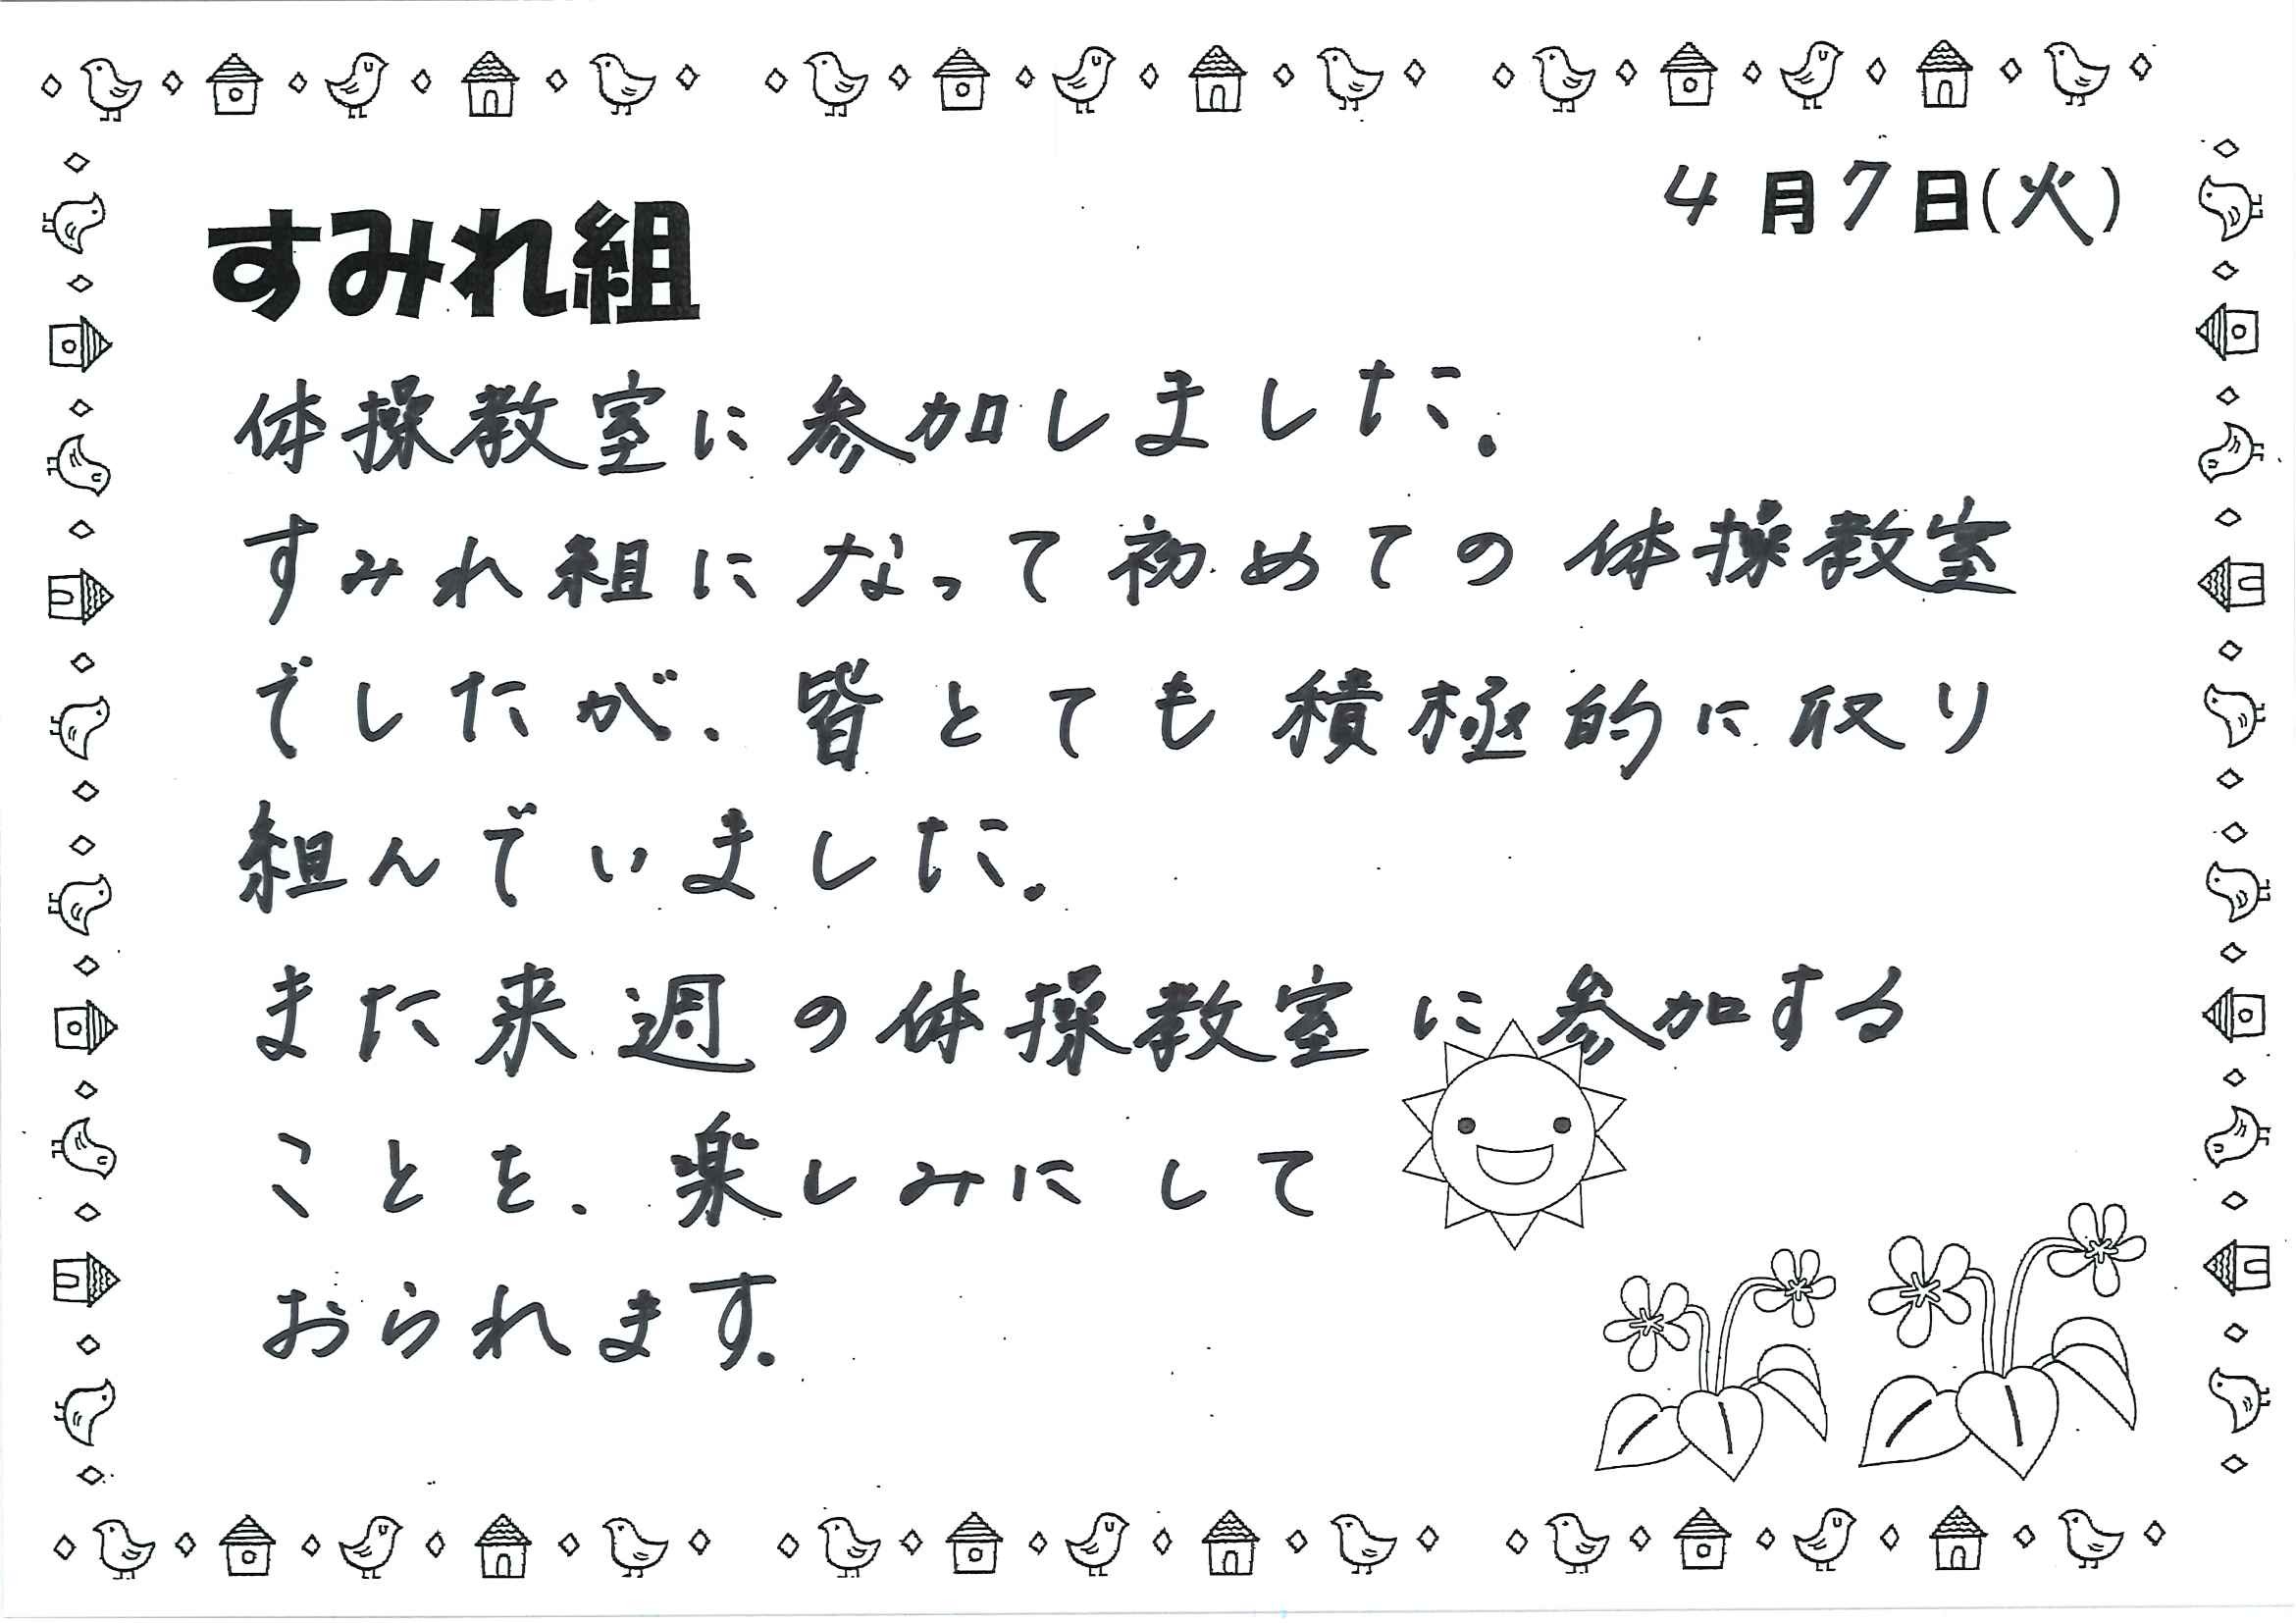 4月7日(火)
すみれ組
体操教室に参加しました。
すみれ組になって初めての体操教室
でしたが、皆とても積極的に取り
組んでいました。
また来週の体操教室に参加する
ことを、楽しみにして
おられます。